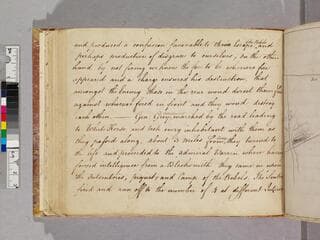 and produced a confusion favorable to their escape, and
perhaps productive of disgrace to ourselves, on the other
hand, by not firing we knew the foe to be wherever fire
appeared and a charge ensured his destruction, that
amongst the Enemy those in the rear would direct their fire
against whoever fired in front and they would destroy
each other. — Gen. Grey, marched by the road leading
to White Horse and took every inhabitant with them as
they passed along, about 3 miles from, they turned to
the left and proceeded to the Admiral Warren where having
forced intelligence from a Blacksmith they came in upon
the outcentries, piquet, and Camp of the Rebels. The Sentries
fired and ran off to the number of 4 at different